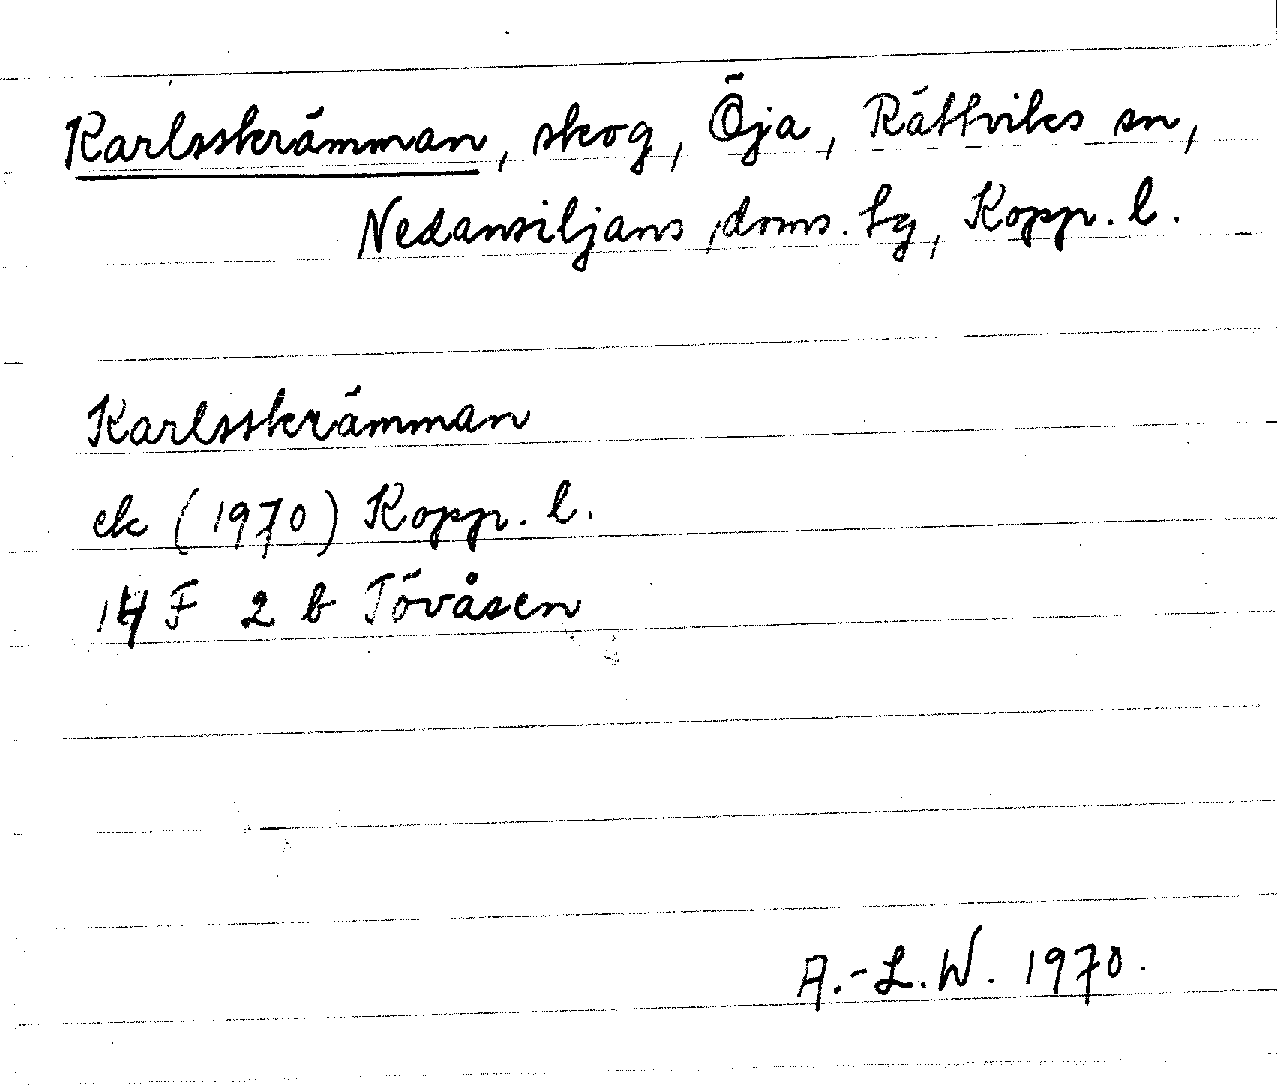 Karlsskrämman, skog, Öja, Rättviks sn,
Nedansiljans doms. lg, Kopp. l.
Karlsskrämman
ek (1970) Kopp. l.
14 F 2 b Tövåsen
A.-L.W. 1970.